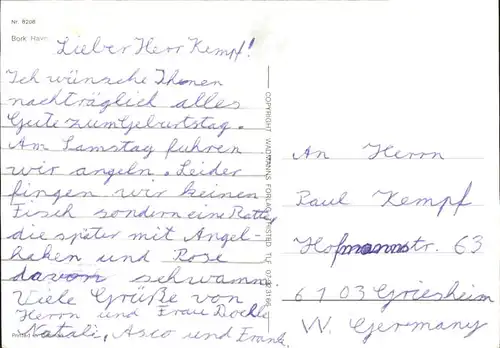 Nr. 8298
Bork Havn
Lieber Herr Kempf!
Ich wünsche Ihnen
nachträglich alles
Gute zum Geburtstag.
Am Samstag fuhren
wir angeln. Leider
fingen wir keinen
Fisch sondern eine Ratte,
die später mit Angel-
haken und Pose
davon schwamm
Viele Grüße von
Herrn und Frau
Natali, Asco und Frank.
COPYRIGHT FORLAG RINGSTED TLF.
An Herrn
Paul Kempf
Hofmannstr. 63
6103 Griesheim
W. Germany